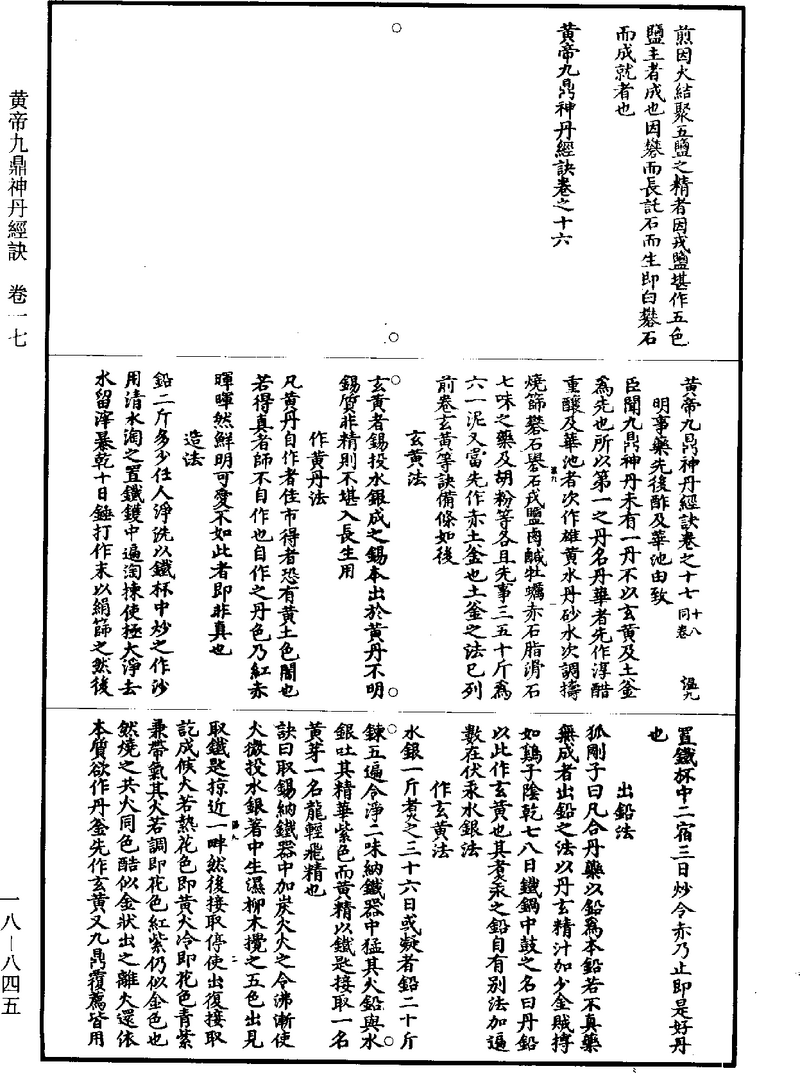 黄帝九鼎神丹經訣　卷一七
煎因火結聚五鹽之精者因戎鹽堪作五色
鹽主者成也因礬而長託石而生即白礬石
而成就者也
黄帝九鼎神丹經訣卷之十六
黄帝九鼎神丹經訣卷之十七 十八同卷 温九
明事藥先後酢及華池由致
臣聞九鼎神丹未有一丹不以玄黄及土釜
爲先也所以第一之丹名丹華者先作淳酷
重釀及華池者次作雄黄水丹砂水次調擣
燒篩礬石礜石戎鹽鹵鹹牡蠣赤石脂滑石
七味之藥及胡粉等各且先事三五十斤爲
六一泥又當先作赤土釜也土釜之法已列
前卷玄黄等訣備條如後
玄黄法
玄黄者錫投水銀成之錫本出於黄丹不明
錫質非精則不堪入長生用
作黄丹法
凡黄丹自作者佳市得者恐有黄土色闇也
若得真者師不自作也自作之丹色乃紅赤
暉暉然鮮明可愛不如此者即非真也
造法
鉛二斤多少任人淨洗以鐵杯中炒之作沙
用清水淘之置鐵鑊中遍淘揀使極大淨去
水留滓暴乾十日錘打作末以絹篩之然後
置鐵杯中二宿三日炒令赤乃止即是好丹
也
出鉛法
狐剛子曰凡合丹藥以鉛爲本鉛若不真藥
無成者出鉛之法以丹玄精汁加少金賊摶
如鷄子陰乾七八日鐵鍋中鼓之名曰丹鉛
以此作玄黄也其煑汞之鉛自有别法加遍
數在伏汞水銀法
作玄黄法
水銀一斤煑之三十六日或凝者鉛二十斤
鍊五遍令淨二味納鐵器中猛其火鉛與水
銀吐其精華紫色而黄精以鐵匙接取一名
黄芽一名龍輕飛精也
訣曰取錫納鐵器中加炭火火之令沸漸使
火微投水銀著中生濕柳木攪之五色出見
取鐵匙掠近一畔然後接取停使出復接取
訖成候火若熱花色即黄火冷即花色青紫
兼帶氣其火若調即花色紅紫仍似金色也
然燒之共火同色酷似金狀出之離火還依
本質欲作丹釜先作玄黄又九鼎覆薦皆用
一八—八四五